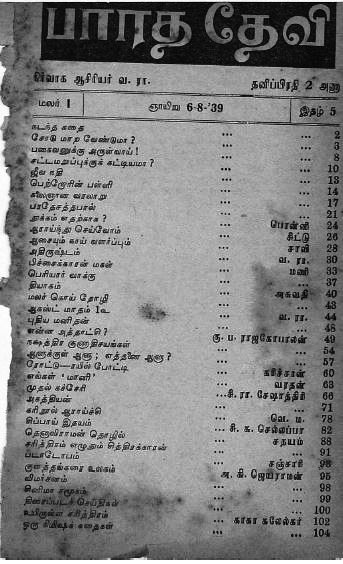 பாரத தேவி
நிர்வாக ஆசிரியர் வ. ரா. தனிப்பிரதி 2 அணா
மலர் 1 ஞாயிறு 6-8-'39 இதழ் 5
நடந்த கதை ... ... 2
சோடு மாற வேண்டுமா? ... ... 3
பகைவனுக்கு அருள்வாய்! ... ... 8
சட்டமறுப்புக்குக் கட்டியமா? ... ... 10
ஜீவ நதி ... ... 13
பெற்றோரின் பள்ளி ... ... 14
கலைஞான வரலாறு ... ... 17
பரதேசத்தபால் ... ... 21
துக்கம் எதற்காக? ... பொன்னி 24
ஆராய்ந்து செய்வோம் ... சிட்டு 26
ஆசையும் காய் வளர்ப்பும் ... சாரவி 28
அதிருஷ்டம் ... வ. ரா. 30
பிச்சைக்காரன் மகள் ... மணி 33
பெரியார் வாக்கு ... ... 37
தியாகம் ... அசுவதி 40
மலர் கொய் தோழி ... ... 43
ஆகஸ்ட் மாதம் 1உ ... வ. ரா. 44
புதிய மனிதன் ... ... 48
என்ன அத்தாட்சி? கு. ப. ராஜகோபாலன் 49
நக்ஷத்திர குணாதிசயங்கள் ... ... 54
ஆளுக்குள் ஆளு; எத்தனை ஆளு? ... ... 57
ரோட்டு—ரயில் போட்டி ... கரிச்சான் 60
எங்கள் 'மானி' ... வரதன் 63
முதல் கச்சேரி ... சி. ரா. சேஷாத்திரி 66
அகத்தியன் ... ... 71
கரிநாள் ஆராய்ச்சி ... வெ. ம. 78
சிப்பாய் இதயம் ... சி. சு. செல்லப்பா 82
தெனாலிராமன் தொழில் ... சதயம் 88
சரித்திரம் எழுதும் சித்திரக்காரன் ... ... 91
படாடோபம் ... சஞ்சாரி 93
குளத்தங்கரை உலகம் ... அ. கி. ஜெயராமன் 95
விமர்சனம் ... ... 98
சினிமா சமூகம் ... ... 99
திரைப்படச் செய்திகள் ... ... 100
உயிருள்ள சரித்திரம் ... காகா கலேல்கர் 102
ஒரு நிமிஷக் கதைகள் ... ... 104